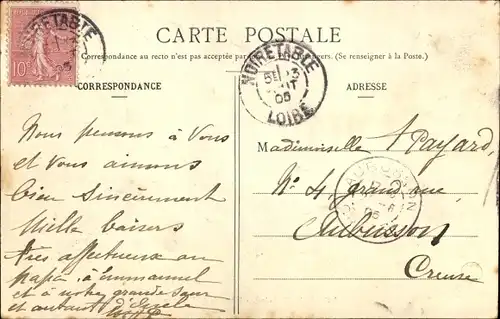 CARTE POSTALE
Correspondance au recto n'est pas acceptée par (Se renseigner à la Poste.)
CORRESPONDANCE
ADRESSE
NOIRETABLE
10
NOIRETABLE
LOIRE
Nous pensons à Vous
et Vous aimons
bien sincèrement
Mille baisers
très affectueux au
papa, à Emmanuel
et à notre grande sœur
et autant d'
Mademoiselle Payard
N° 4 grand rue
Aubusson
Creuse
AUBUSSON